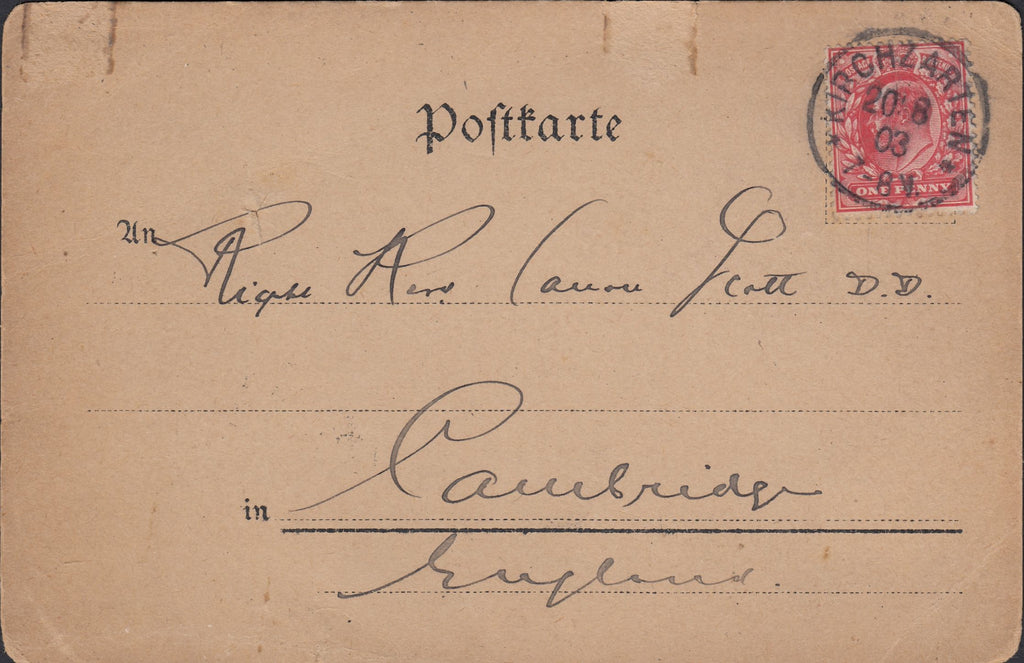 Postkarte
KIRCHZARTEN
20.8
03
7-8V.
ONE PENNY
An Right Rev. Canon Scott D.D.
in Cambridge
England.